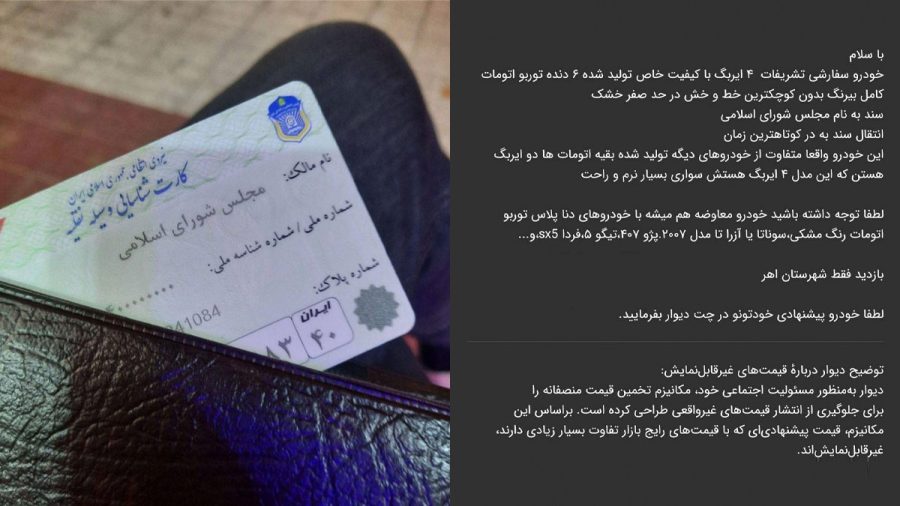 نیروی انتظامی جمهوری اسلامی ایران
کارت شناسایی وسیله نقلیه
نام مالک:
مجلس شورای اسلامی
شماره ملی / شماره شناسه ملی:
شماره پلاک:
41084
ایران
۴۰
۸۳
با سلام
خودرو سفارشی تشریفات ۴ ایربگ با کیفیت خاص تولید شده ۶ دنده توربو اتومات
کامل بیرنگ بدون کوچکترین خط و خش در حد صفر خشک
سند به نام مجلس شورای اسلامی
انتقال سند به در کوتاهترین زمان
این خودرو واقعا متفاوت از خودروهای دیگه تولید شده بقیه اتومات ها دو ایربگ
هستن که این مدل ۴ ایربگ هستش سواری بسیار نرم و راحت
لطفا توجه داشته باشید خودرو معاوضه هم میشه با خودروهای دنا پلاس توربو
اتومات رنگ مشکی،سوناتا یا آزرا تا مدل ۲۰۰۷.پژو ۴۰۷،تیگو ۵،فردا sx5،و...
بازدید فقط شهرستان اهر
لطفا خودرو پیشنهادی خودتونو در چت دیوار بفرمایید.
توضیح دیوار دربارهٔ قیمت‌های غیرقابل‌نمایش:
دیوار به‌منظور مسئولیت اجتماعی خود، مکانیزم تخمین قیمت منصفانه را
برای جلوگیری از انتشار قیمت‌های غیرواقعی طراحی کرده است. براساس این
مکانیزم، قیمت پیشنهادی‌ای که با قیمت‌های رایج بازار تفاوت بسیار زیادی دارند،
غیرقابل‌نمایش‌اند.